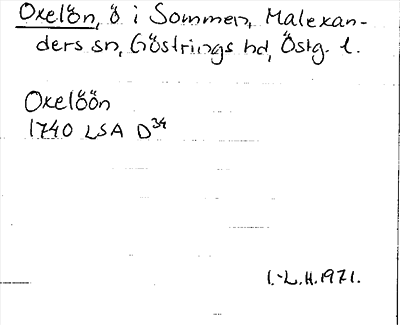 Oxelön, ö i Sommen, Malexan-
ders sn, Göstrings hd, Östg. l.
Oxelöön
1740 LSA D34
I.-L.H.1971.